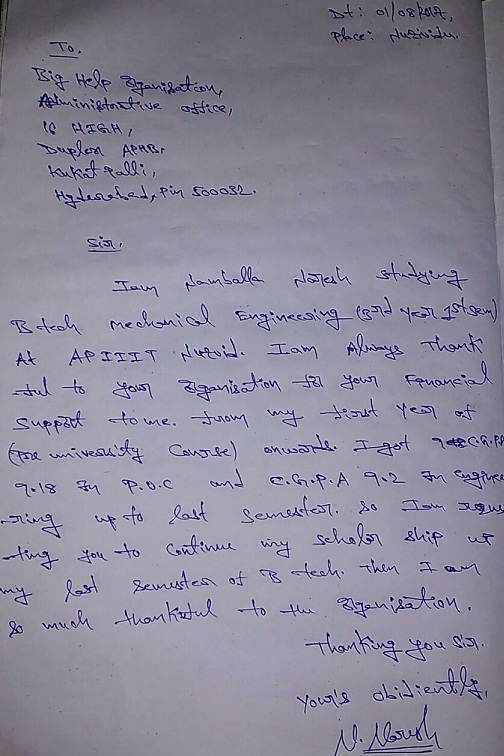 Dt: 01/08/2017,
Place: Nuzividu.
To,
Big Help Organisation,
Administrative office,
16 HIGH,
Duplex APHB,
Kukat palli,
Hyderabad, Pin 500032.
Sir,
I am Namballa Naresh studying
B-tech mechanical Engineering (3rd year 1st sem)
At AP IIIT Nuzvid. I am Always Thank
ful to your Organisation for your Financial
Support to me. from my first year of
(pre university Course) onwards. I got C.G.PA
9.18 In P.U.C and C.G.P.A 9.2 In enginee
-ring up to last semester. So I am reque
-ting you to Continue my scholar ship up
my last semester of B-tech. Then I am
so much thankful to the Organisation.
Thanking you sir.
Your's obidiently,
N. Naresh